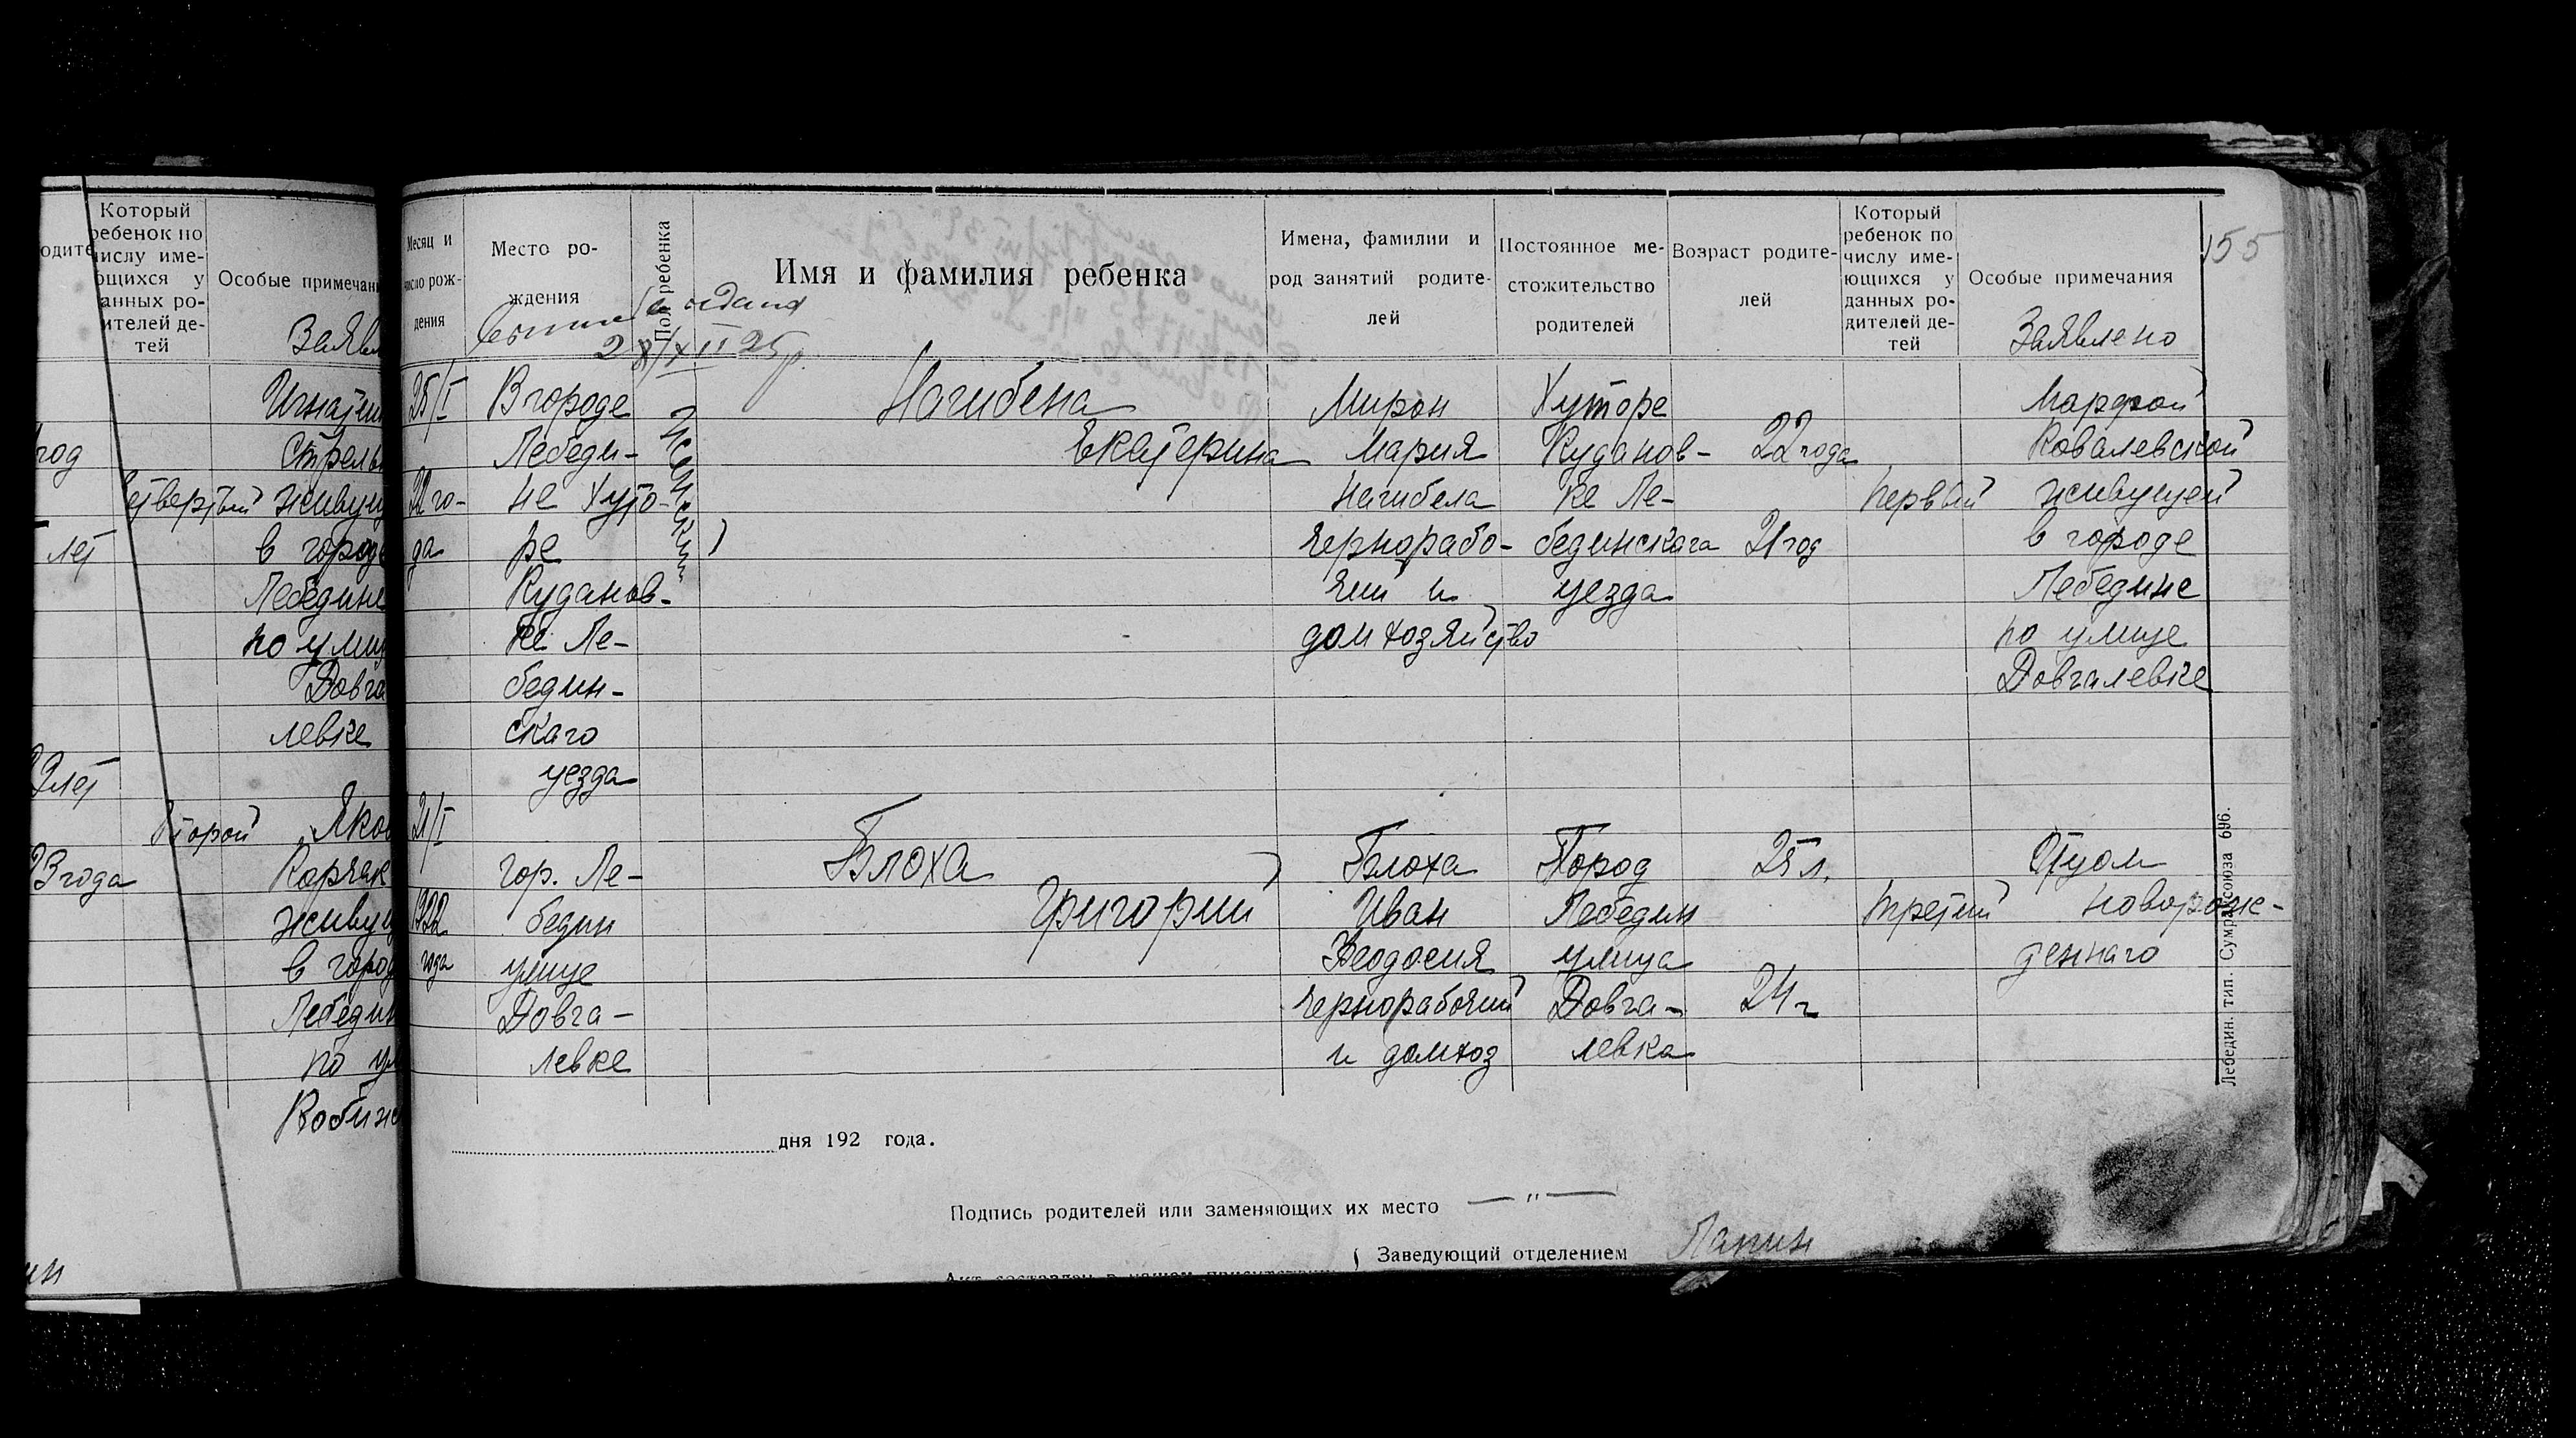 Который
ребенок по
числу име-
ющихся у
данных ро-
дителей де-
тей
Особые примечани
Заявл
Игнатии
год
Стрель
четвертый живущ
лет
в городе
Лебедине
по улиц
Довга
левке
22 лет
Второй
Яков
23 года
Корчак
живущ
в город
Лебедин
по ул
Кобиж
ин
Месяц и
число рож-
дения
Место ро-
ждения
Пол ребенка
Имя и фамилия ребенка
Имена, фамилии и
род занятий родите-
лей
Постоянное ме-
стожительство
родителей
Возраст родите-
лей
Который
ребенок по
числу име-
ющихся у
данных ро-
дителей де-
тей
Особые примечания
155
выдана
28/XII 25 р.
Заявлено
25/I
22 го-
да
В городе
Лебеди-
не Хуто-
ре
Куданов-
ке Ле-
бедин-
скаго
уезда
Женский
Нагибена
Екатерина
Мирон
Мария
Нагибела
чернорабо-
чий и
домхозяйство
Хуторе
Куданов-
ке Ле-
бединскага
уезда
22 года
21 год
первый
Марфой
Ковалевской
живущей
в городе
Лебедине
по улице
Довгалевке
21/I
1922
года
гор. Ле-
бедин
улице
Довга-
левке
Блоха
Григорий
Блоха
Иван
Феодосия
чернорабочий
и домхоз
Город
Лебедин
улица
Довга-
левка
25 л.
24 г
третий
Отцом
новорож-
деннаго
Лебедин. тип. Сумрайсоюза 696.
дня 192 года.
Подпись родителей или заменяющих их место — " —
Заведующий отделением Лапин
Акт составлен в нашем присутствии